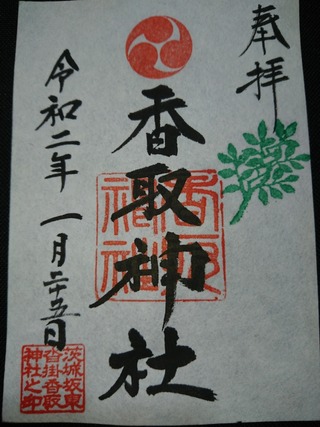 奉拝
香取神社
令和二年 一月二十五日
茨城坂東
沓掛香取
神社之印